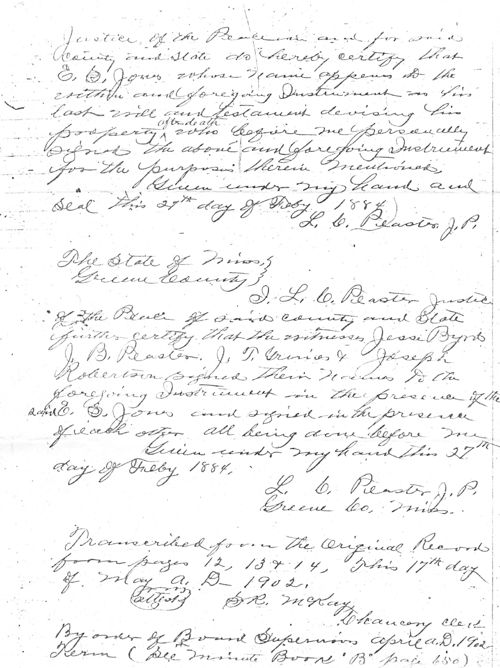 Justice of the Peace in and for said
County and State do hereby certify that
E. S. Jones whose name appears to the
within and foregoing Instrument as his
last will and testament devising his
property after death who before me personally
signed the above and foregoing Instrument
for the purposes therein mentioned
Given under my hand and
seal this 27th day of Feby 1884
L. C. Peaster, J.P.
The State of Miss.
Greene County
I, L. C. Peaster Justice
of the Peace of said county and State
further certify that the witnesses Jesse Byrd
J. B. Peaster. J. T. & Joseph
Robertson signed their names to the
foregoing Instrument in the presence of the
said E. S. Jones and signed in the presence
of each other all being done before me
Given under my hand this 27th
day of Feby 1884.
L. C. Peaster, J.P.
Greene Co. Miss.
Transcribed from the Original Record
from pages 12, 13 & 14, This 17th day
of May A. D. 1902.
S.R. McKay
Chancery Clerk
By order of Board Supervisors April A.D. 1902
Term (See Minute Book "B" page